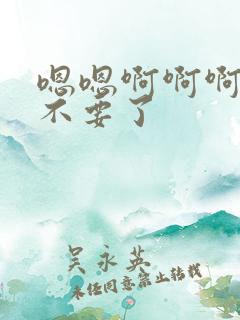 嗯嗯啊啊啊
不要了
吴永英
未经同意禁止转载